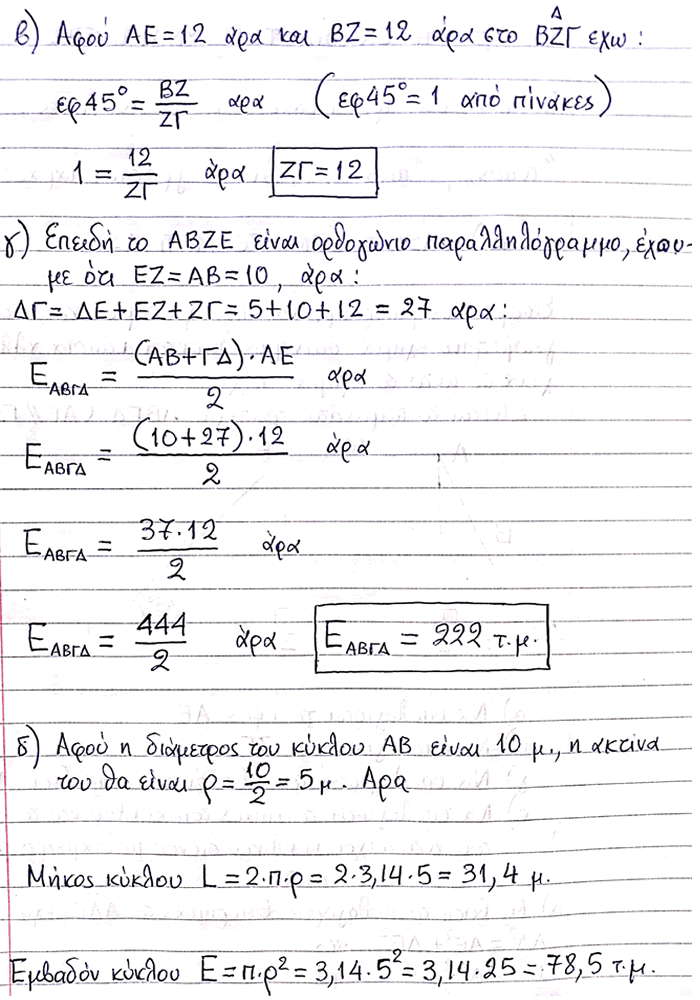 β) Αφού ΑΕ=12 άρα και ΒΖ=12 άρα στο ΒΖΓ έχω:
εφ45° = ΒΖ/ΖΓ άρα (εφ45°=1 από πίνακες)
1 = 12/ΖΓ άρα ΖΓ=12
γ) Επειδή το ΑΒΖΕ είναι ορθογώνιο παραλληλόγραμμο, έχου-
με ότι ΕΖ=ΑΒ=10, άρα:
ΔΓ=ΔΕ+ΕΖ+ΖΓ=5+10+12=27 άρα:
Ε_ΑΒΓΔ = (ΑΒ+ΓΔ)·ΑΕ/2 άρα
Ε_ΑΒΓΔ = (10+27)·12/2 άρα
Ε_ΑΒΓΔ = 37·12/2 άρα
Ε_ΑΒΓΔ = 444/2 άρα Ε_ΑΒΓΔ = 222 τ.μ.
δ) Αφού η διάμετρος του κύκλου ΑΒ είναι 10 μ., η ακτίνα
του θα είναι ρ = 10/2 = 5μ. Αρα
Μήκος κύκλου L = 2·π·ρ = 2·3,14·5 = 31,4 μ.
Εμβαδόν κύκλου Ε = π·ρ² = 3,14·5² = 3,14·25 = 78,5 τ.μ.